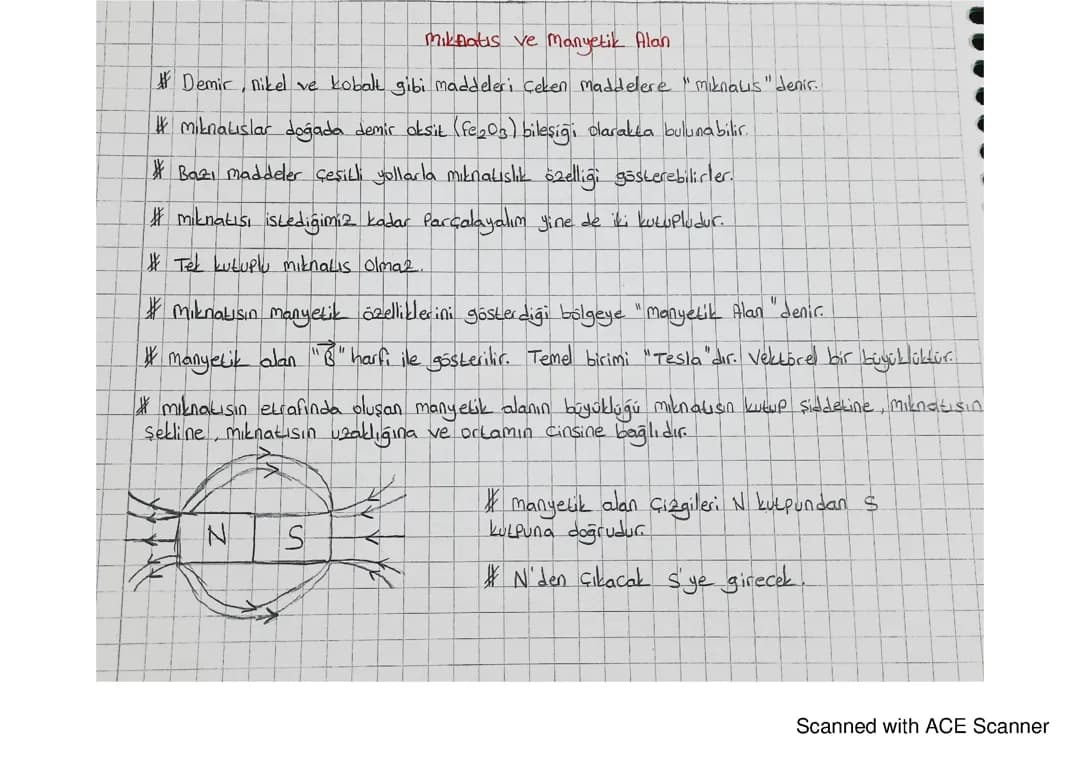 Mıknatıs ve Manyetik Alan
# Demir, nikel ve kobalt gibi maddeleri çeken maddelere "mıknatıs" denir.
# mıknatıslar doğada demir oksit (Fe2O3) bileşiği olarakta bulunabilir.
# Bazı maddeler çeşitli yollarla mıknatıslık özelliği gösterebilirler.
# mıknatısı istediğimiz kadar Parçalayalım yine de iki kutupludur.
# Tek kutuplu mıknatıs olmaz.
# mıknatısın manyetik özelliklerini gösterdiği bölgeye "manyetik Alan" denir.
# manyetik alan "B⃗" harfi ile gösterilir. Temel birimi "Tesla"dır. Vektörel bir büyüklüktür.
# mıknatısın etrafında oluşan manyetik alanın büyüklüğü mıknatısın kutup şiddetine, mıknatısın
şekline, mıknatısın uzaklığına ve ortamın cinsine bağlıdır.
N S
# manyetik alan çizgileri N kutpundan S
kutpuna doğrudur.
# N'den çıkacak S'ye girecek.
Scanned with ACE Scanner